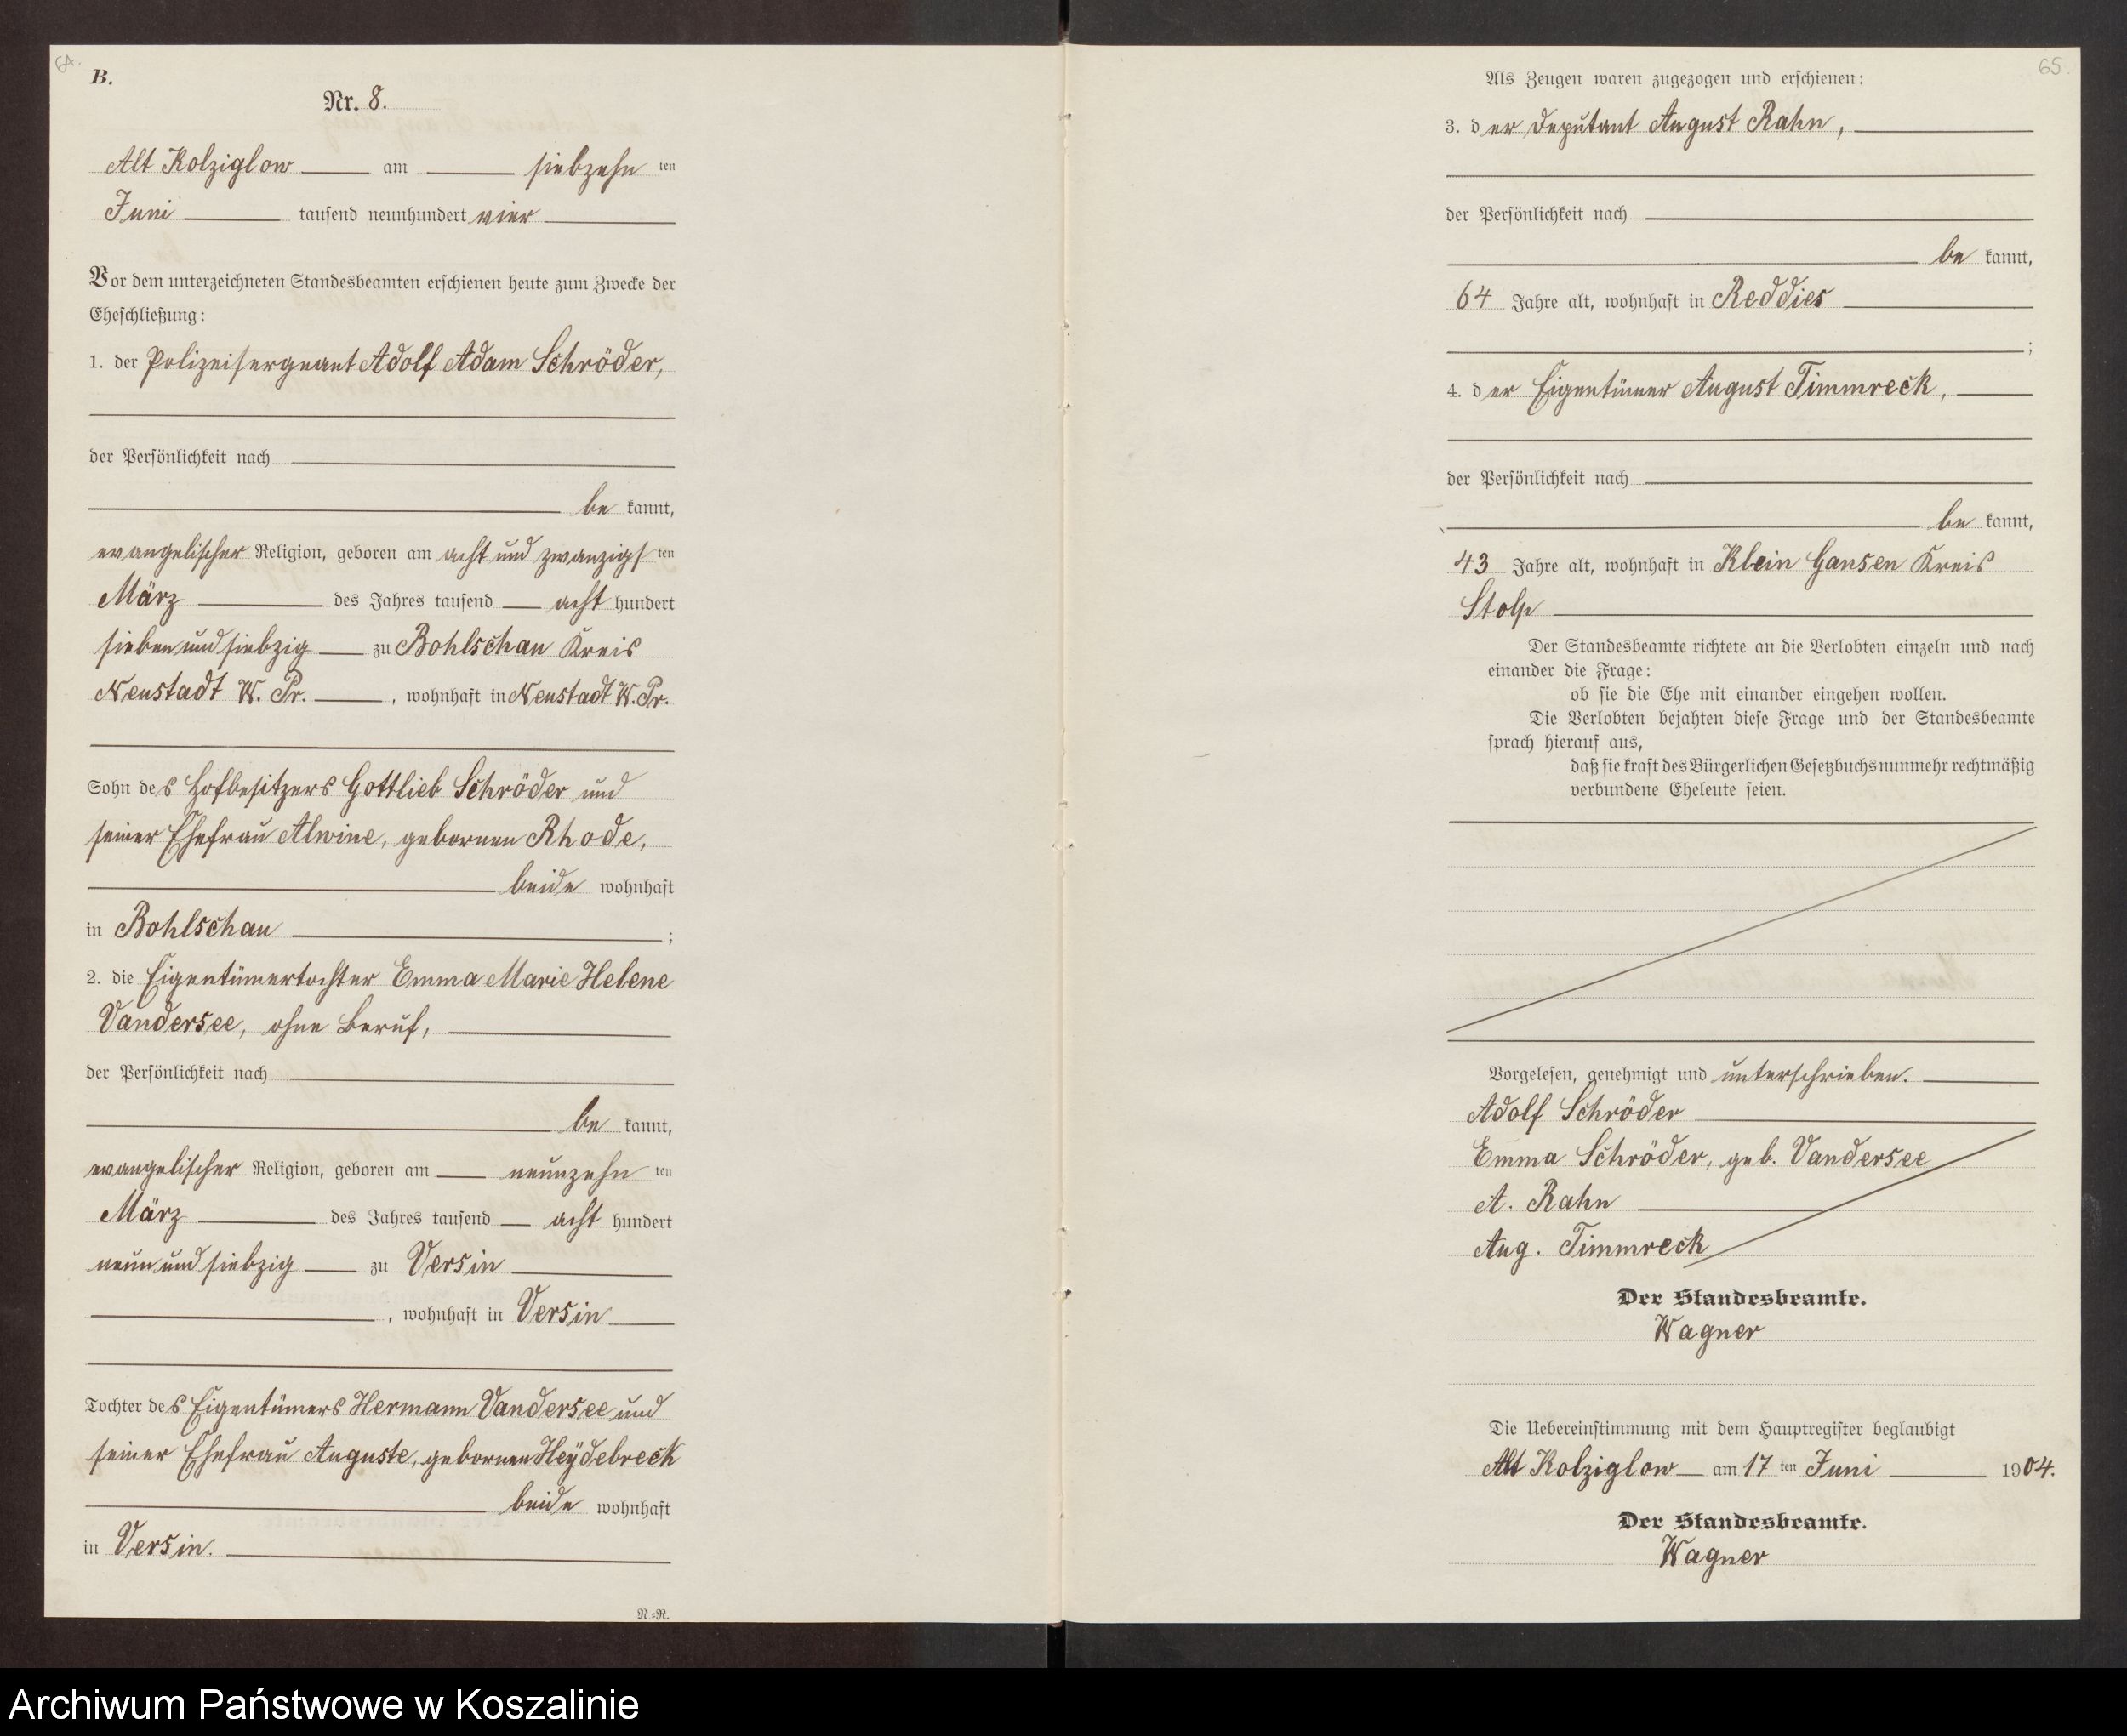 64.
B.
Nr. 8.
Alt Kolziglow am siebzehn ten
Juni tausend neunhundert vier
Vor dem unterzeichneten Standesbeamten erschienen heute zum Zwecke der
Eheschließung:
1. der Polizeisergeant Adolf Adam Schröder,
der Persönlichkeit nach
be kannt,
evangelischer Religion, geboren am acht und zwanzigs ten
März des Jahres tausend acht hundert
sieben und siebzig zu Bohlschau Kreis
Neustadt W. Pr. , wohnhaft in Neustadt W. Pr.
Sohn des Hofbesitzers Gottlieb Schröder und
seiner Ehefrau Alwine, gebornen Rhode,
beide wohnhaft
in Bohlschau ;
2. die Eigentümertochter Emma Marie Helene
Vandersee, ohne Beruf,
der Persönlichkeit nach
be kannt,
evangelischer Religion, geboren am neunzehn ten
März des Jahres tausend acht hundert
neun und siebzig zu Versin
, wohnhaft in Versin
Tochter des Eigentümers Hermann Vandersee und
seiner Ehefrau Auguste, gebornen Heydebreck
beide wohnhaft
in Versin.
N.=R.
65.
Als Zeugen waren zugezogen und erschienen:
3. der Deputant August Rahn,
der Persönlichkeit nach
be kannt,
64 Jahre alt, wohnhaft in Reddies
;
4. der Eigentümer August Timmreck,
der Persönlichkeit nach
be kannt,
43 Jahre alt, wohnhaft in Klein Gansen Kreis
Stolp
Der Standesbeamte richtete an die Verlobten einzeln und nach
einander die Frage:
ob sie die Ehe mit einander eingehen wollen.
Die Verlobten bejahten diese Frage und der Standesbeamte
sprach hierauf aus,
daß sie kraft des Bürgerlichen Gesetzbuchs nunmehr rechtmäßig
verbundene Eheleute seien.
Vorgelesen, genehmigt und unterschrieben.
Adolf Schröder
Emma Schröder, geb. Vandersee
A. Rahn
Aug. Timmreck
Der Standesbeamte.
Wagner
Die Uebereinstimmung mit dem Hauptregister beglaubigt
Alt Kolziglow am 17 ten Juni 1904.
Der Standesbeamte.
Wagner
Archiwum Państwowe w Koszalinie